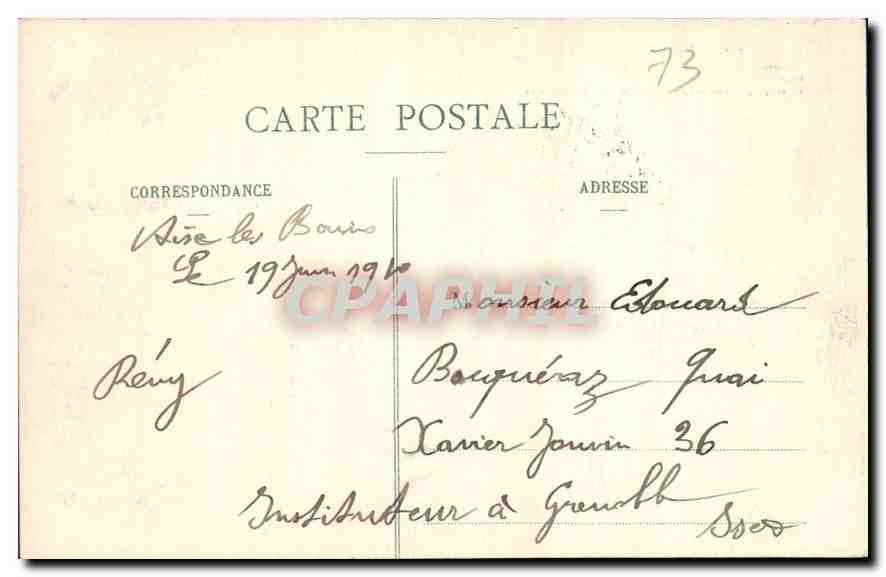 73
CARTE POSTALE
CORRESPONDANCE
ADRESSE
Aixe les Bains
Le 19 Juin 1910
CPAPHIL
Monsieur Edouard
Rémy
Bouquéraz Quai
Xavier Jouvin 36
Instituteur à Grenoble
Isère